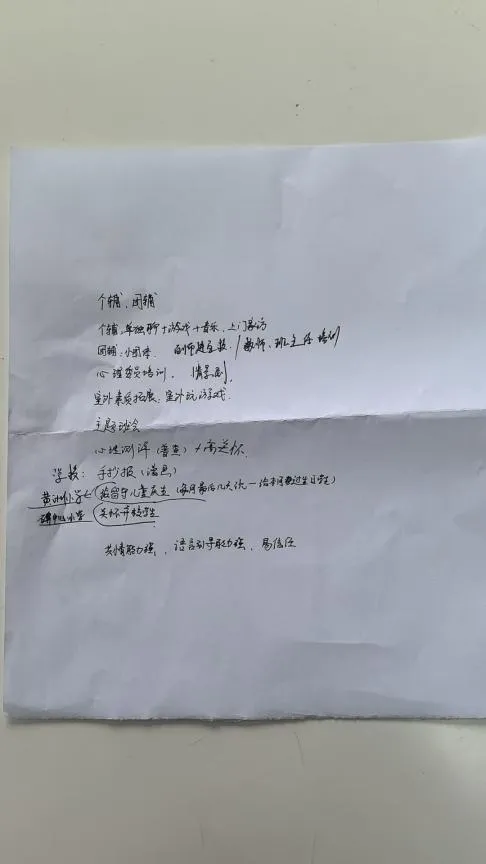 个辅、团辅
个辅:单独聊+游戏+音乐、上门家访
团辅:小团体. / 教师、班主任培训
心理委员培训. 情景剧.
室外素质拓展:室外玩游戏.
主题班会
心理测评(普查)+高关怀.
学校:手抄报(漫画)
小学 给留守儿童庆生(每月最后几天 统一给本月要过生日学生)
小学 关怀学生
共情能力强、语言引导能力强、易信任